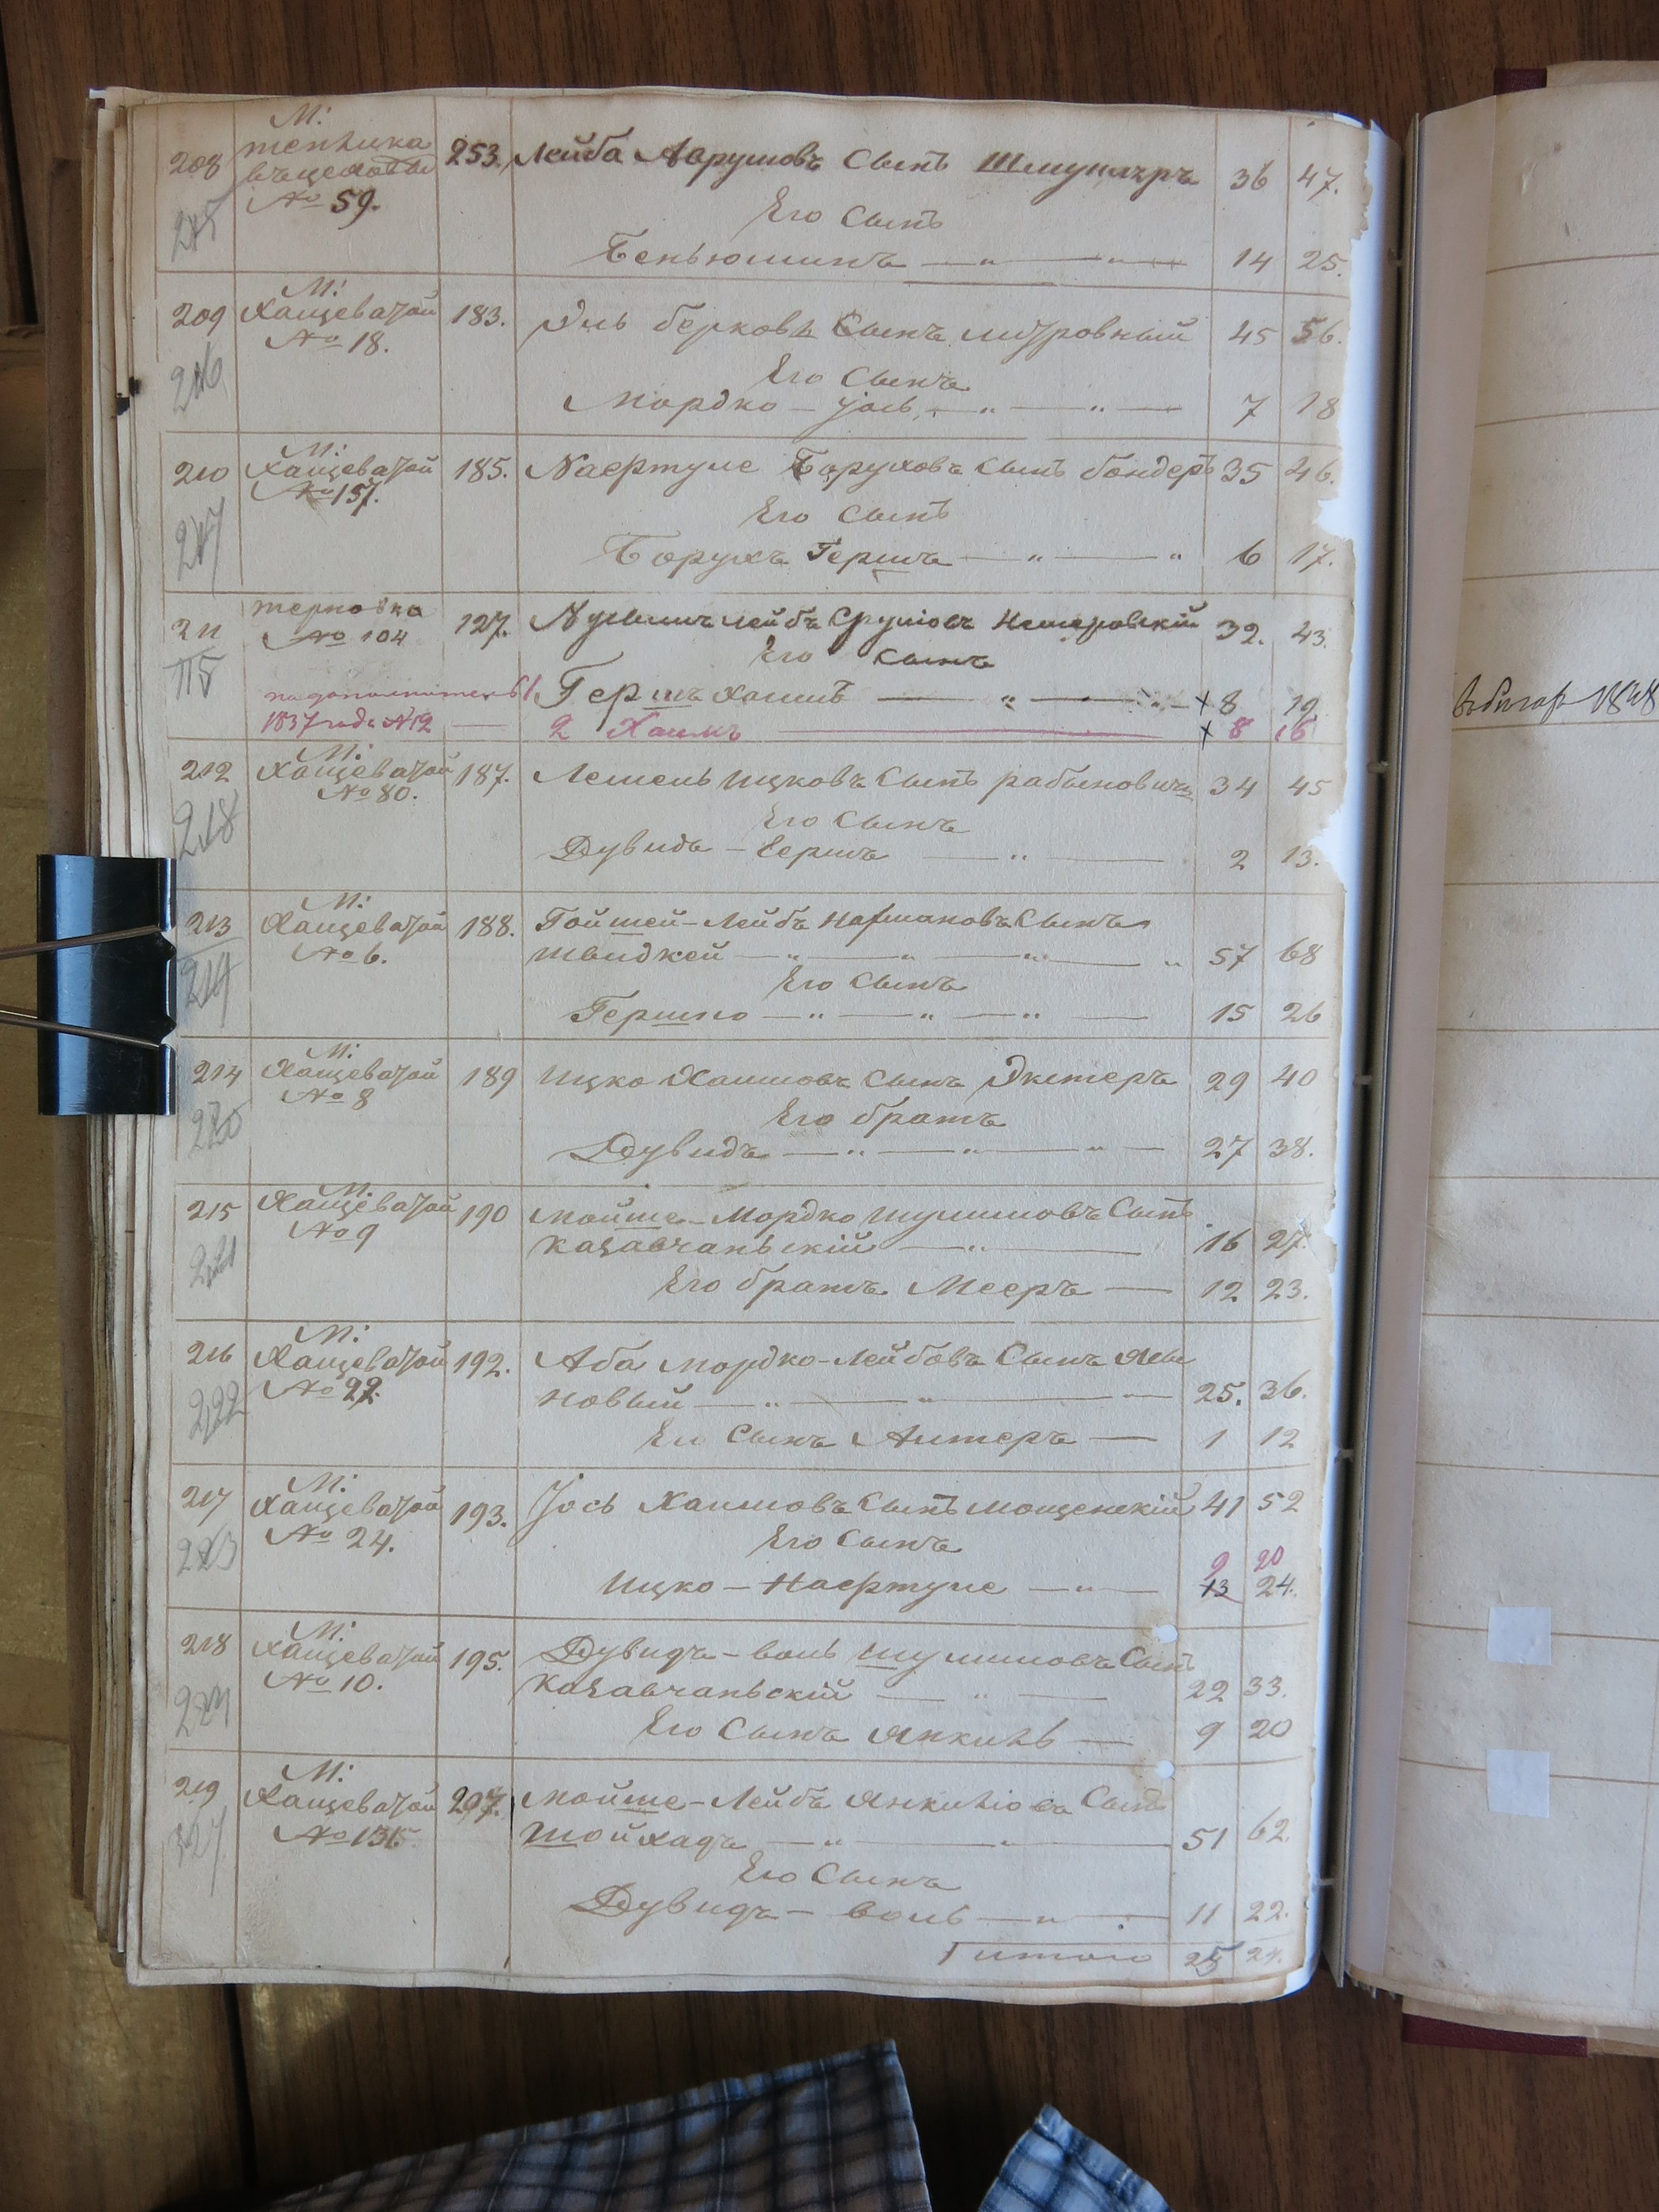 208 М: теплика 253. Лейба Аврумовъ Сынъ Шмуклеръ 36 47.
№ 59.
Его Сынъ
215
Беньюминъ — „ — „ — 14 25.
М:
209 Хащеватой 183. Эль берковъ Сынъ 45 56.
№ 18.
Его Сынъ
216
Мордко – Іось — „ — „ — 7 18
М:
210 Хащеватой 185. Нафтуле Боруховъ Сынъ бондеръ 35 46.
№ 157.
Его Сынъ
217
Борухъ Гершъ — „ — „ 6 17.
211 терновка 127. лейбъ Срулiовъ 32. 43.
№ 104
Его сынъ
115
Гершъ хаимъ — „ — х 8 19
1837 года №12 — 2 Хаимъ — х 8 16
М:
212 Хащеватой 187. Ицковъ Сынъ рабиновичъ 34 45
№ 80.
218
Его Сынъ
Дувидъ – Гершъ — „ — 2 13.
М:
213 Хащеватой 188. Гойшей – Лейбъ Нахмановъ Сынъ
№ 6. швидкей — „ — „ — „ — „ 57 68
219
Его Сынъ
Гершко — „ — „ — „ — 15 26
М:
214 Хащеватой 189 Ицко Хаимовъ Сынъ Экстеръ 29 40
№ 8
220
Его братъ
Дувидъ — „ — „ — „ — 27 38.
М:
215 Хащеватой 190 мойше – Мордко шулимовъ Сынъ
№ 9 казавчаньскій — „ — 16 27.
221
Его братъ Мееръ — 12 23.
М:
216 Хащеватой 192. Аба мордко – Лейбовъ Сынъ Яли
№ 22. новый — „ — „ — „ — 25. 36.
222
Его Сынъ Алтеръ — 1 12
М:
217 Хащеватой 193. Іось Хаимовъ Сынъ мощенскій 41 52
№ 24.
Его Сынъ
223
9 20
Ицко – Нафтуле — „ — 13 24.
М:
218 Хащеватой 195. Дувидъ – воль шулимовъ Сынъ
№ 10. казавчаньскій — „ — 22 33.
224
Его Сынъ Янкиль — 9 20
М:
219 Хащеватой 207. мойше – Лейбъ Янкилiовъ Сынъ
№ 136 Шойхадъ — „ — „ — 51 62.
Его Сынъ
Дувидъ – воль — „ — 11 22.
итого 25 24.